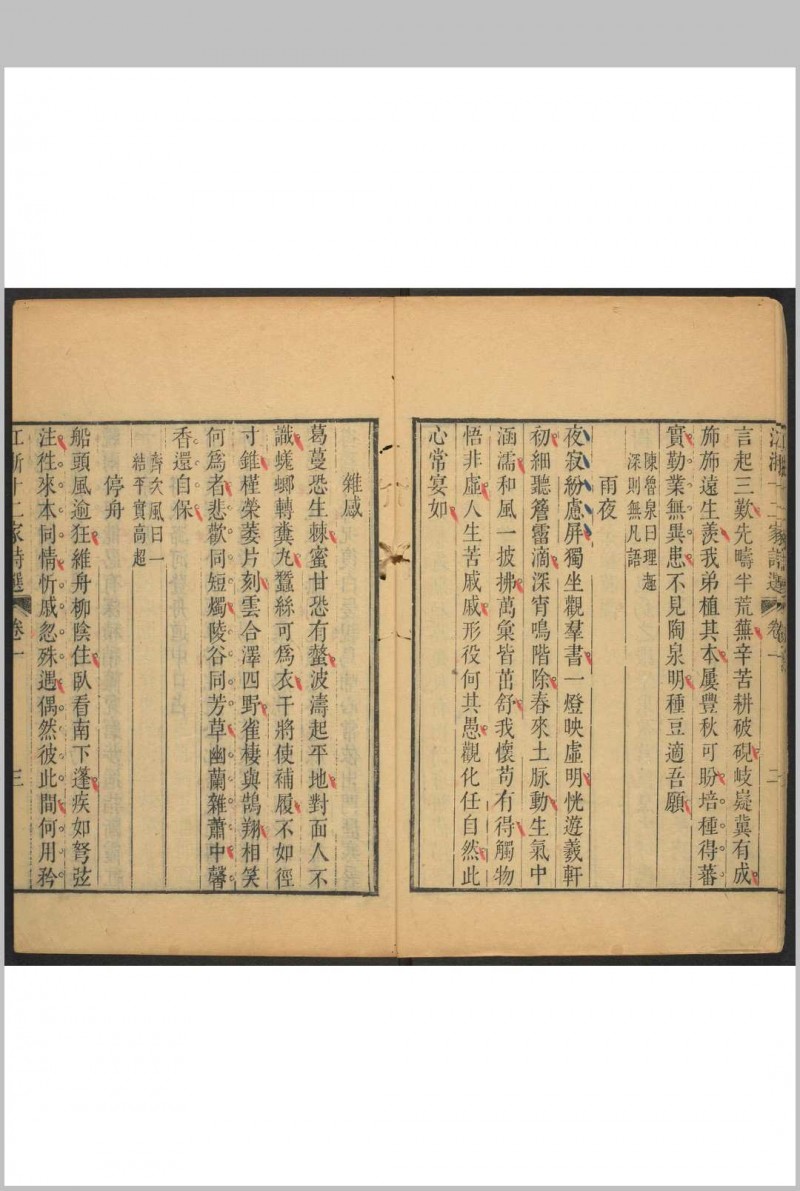 江浙十二家詩選 卷一 二
言起三歎先疇半荒蕪辛苦耕破硯岐嶷冀有成
斾斾遠生羨我弟植其本屢豐秋可盼培種得蕃
實勤業無異患不見陶泉明種豆適吾願
陳魯泉曰理邃
深則無凡語
雨夜
夜寂紛慮屏獨坐觀羣書一燈映虛明恍遊羲軒
初細聽簷霤滴深宵鳴階除春來土脉動生氣中
涵濡和風一披拂萬彙皆茁舒我懷苟有得觸物
悟非虛人生苦戚戚形役何其愚觀化任自然此
心常宴如
雜感
葛蔓恐生棘蜜甘恐有螫波濤起平地對面人不
識蜣螂轉糞丸蠶絲可爲衣干將使補履不如徑
寸錐槿榮萎片刻雲合澤四野雀棲與鵠翔相笑
何爲者悲歡同短燭陵谷同芳草幽蘭雜蕭中馨
香還自保
齊次風曰一
結平實高超
停舟
船頭風逾狂維舟柳陰住臥看南下蓬疾如弩弦
注徃來本同情忻戚忽殊遇偶然彼此間何用矜
江浙十二家詩選 卷一 三